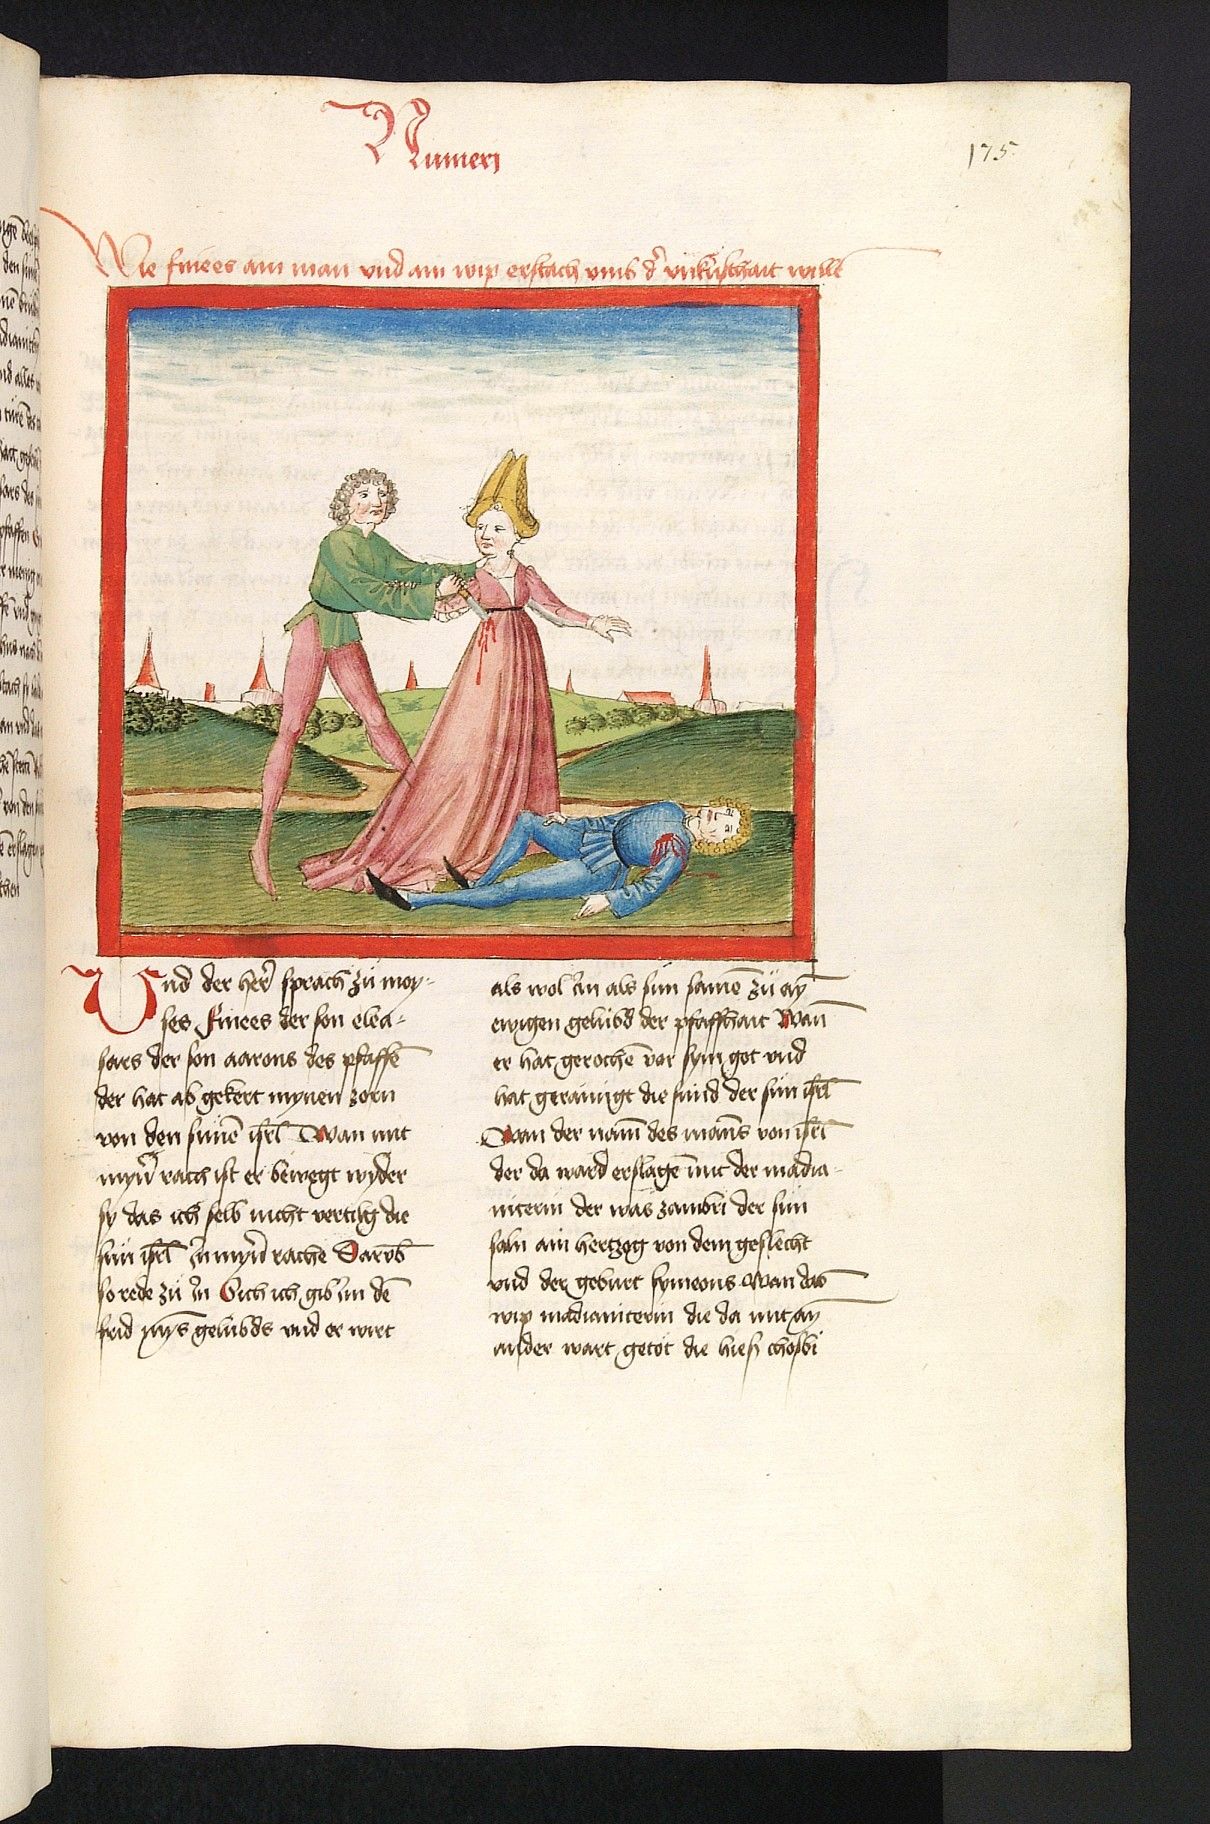 Numeri
175
Wie finees ain man vnd ain wip erstach vmb d̕ vnkúschait wille
Und der her̕ sprach zü moy-
ses Finees der son elea-
sars der son aarons des pfaffē
der hat ab gekert mynen zorn
von den sunē isrl̄ Wan mit
myn̕ rach ist er bewegt wyder
sy das ich selb nicht vertilg die
sun isrl̄ in myn̕ rache Darvb̄
so rede zü in Sich ich gib im dē
frid myns gelubds vnd er wirt
als wol im als sim samē zü ay̅
ewigen gelubd der pfaffhait Wan̄
er hat gerochē vor sym got vnd
hat gerainigt die sund der sun isrl̄
Wan der nam̄ des mans von isrl̄
der da ward erslagē mit der madia-
niterin der was zambri der sun
salu ain hertzog von dem geslecht
vnd der geburt symeons Wan das
wip madianiterin die da mit ay̅
ander wart getöt die hiesz chosbi